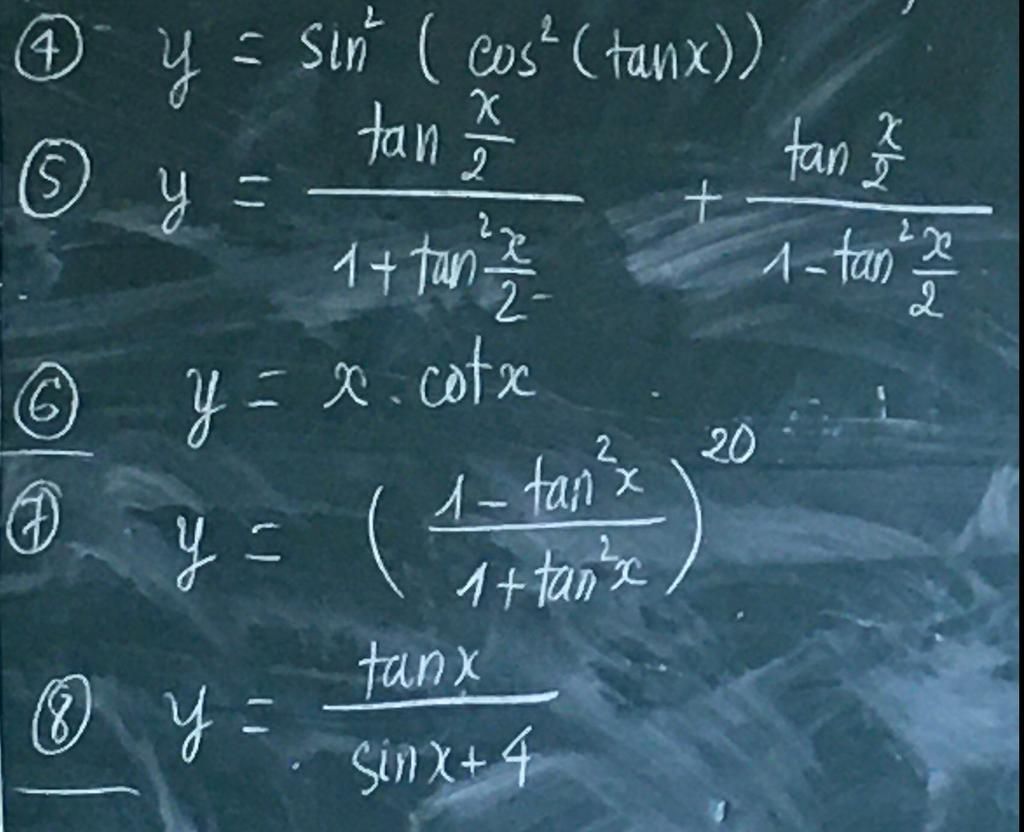 ④ y = sin² ( cos² (tanx))
⑤ y = \frac{tan \frac{x}{2}}{1 + tan² \frac{x}{2}} + \frac{tan \frac{x}{2}}{1 - tan² \frac{x}{2}}
⑥ y = x . cotx
⑦ y = ( \frac{1 - tan²x}{1 + tan²x} )^{20}
⑧ y = \frac{tanx}{sinx + 4}